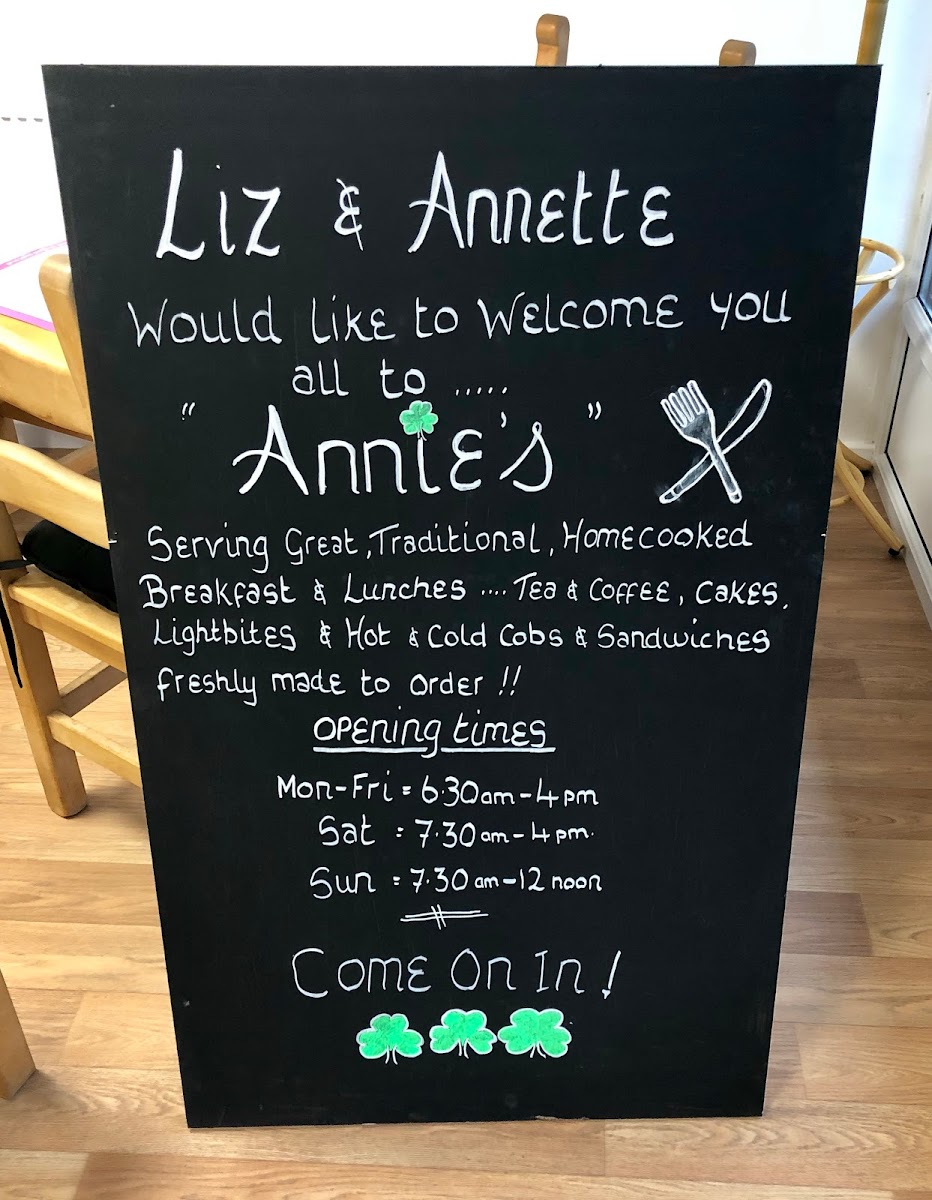 Liz & Annette
Would like to Welcome you
all to .....
"Annie's"
Serving Great, Traditional, Homecooked
Breakfast & Lunches .... Tea & Coffee, Cakes,
Lightbites & Hot & Cold Cobs & Sandwiches
freshly made to order !!
Opening times
Mon-Fri = 6.30am-4pm
Sat = 7.30am-4pm.
Sun = 7.30am-12 noon
Come On In!